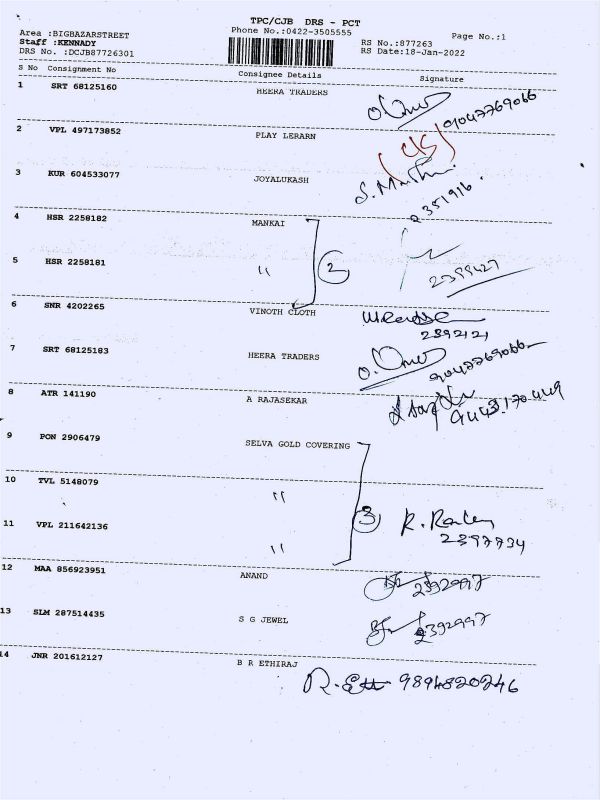 TPC/CJB DRS - PCT
Area :BIGBAZARSTREET Phone No.:0422-3505555 Page No.:1
Staff :KENNADY RS No.:877263
DRS No. :DCJB87726301 RS Date:18-Jan-2022
S No Consignment No Consignee Details Signature
1 SRT 68125160 HEERA TRADERS 9047769066
2 VPL 497173852 PLAY LERARN
3 KUR 604533077 JOYALUKASH 2351916.
4 HSR 2258182 MANKAI
5 HSR 2258181 " 2 2399427
6 SNR 4202265 VINOTH CLOTH 2392121
7 SRT 68125183 HEERA TRADERS 9047769066
8 ATR 141190 A RAJASEKAR 9443170449
9 PON 2906479 SELVA GOLD COVERING
10 TVL 5148079 "
11 VPL 211642136 " 3 2397734
12 MAA 856923951 ANAND 2392997
13 SLM 287514435 S G JEWEL 2392997
14 JNR 201612127 B R ETHIRAJ 9894820246